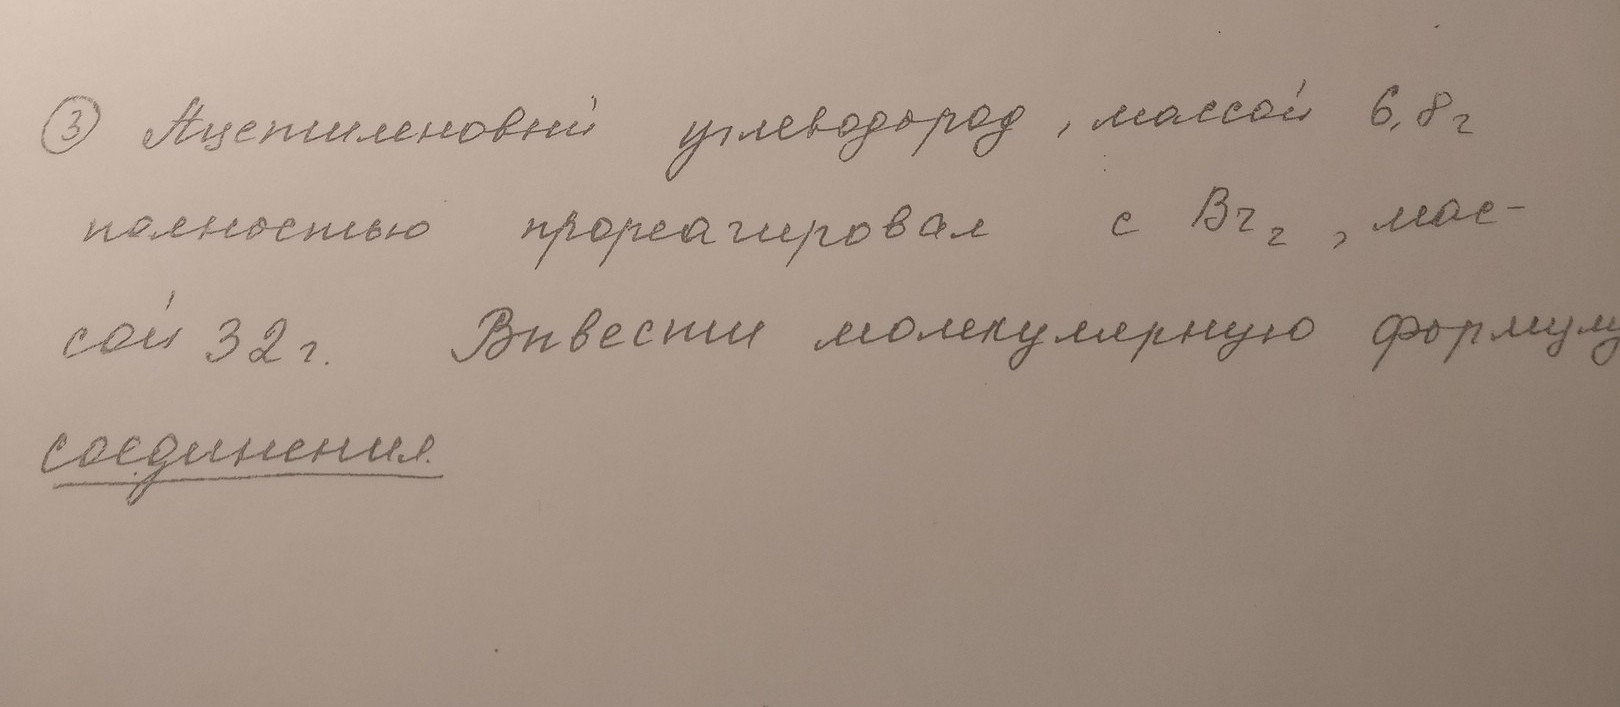 ③ Ацетиленовый углеводород, массой 6,8 г
полностью прореагировал с Br₂, мас-
сой 32 г. Вывести молекулярную формулу
соединения.